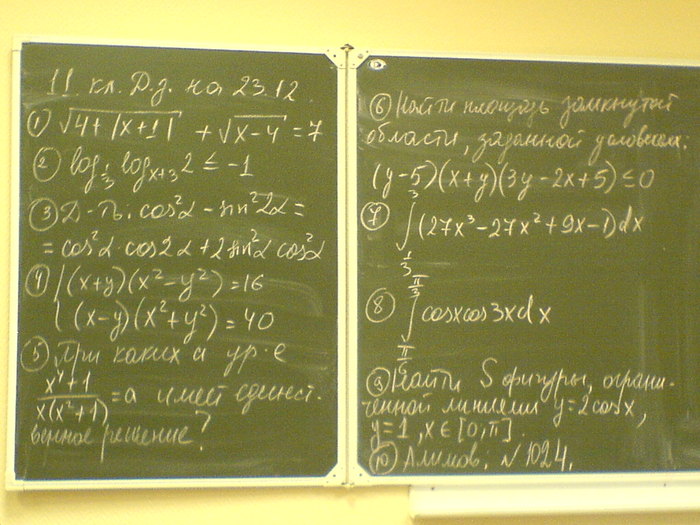 11 кл. Д.з. на 23.12.
① √4+|x+1| + √x-4 = 7
② log_{1/3} log_{x+3} 2 ≤ -1
③ Д-ть: cos²α - sin²2α =
= cos²α·cos2α + 2sin²α·cos²α
④ { (x+y)(x²-y²) = 16
(x-y)(x²+y²) = 40
⑤ При каких a ур-е
(x⁴+1)/(x(x²+1)) = a имеет единст-
венное решение?
⑥ Найти площадь замкнутой
области, заданной условием:
(y-5)(x+y)(3y-2x+5) ≤ 0
⑦ ∫_{1/3}^{3} (27x³-27x²+9x-1)dx
⑧ ∫_{π/6}^{π/3} cosxcos3xdx
⑨ Найти S фигуры, ограни-
ченной линиями y=2cosx,
y=1, x∈[0,π].
⑩ Алимов, №1024.